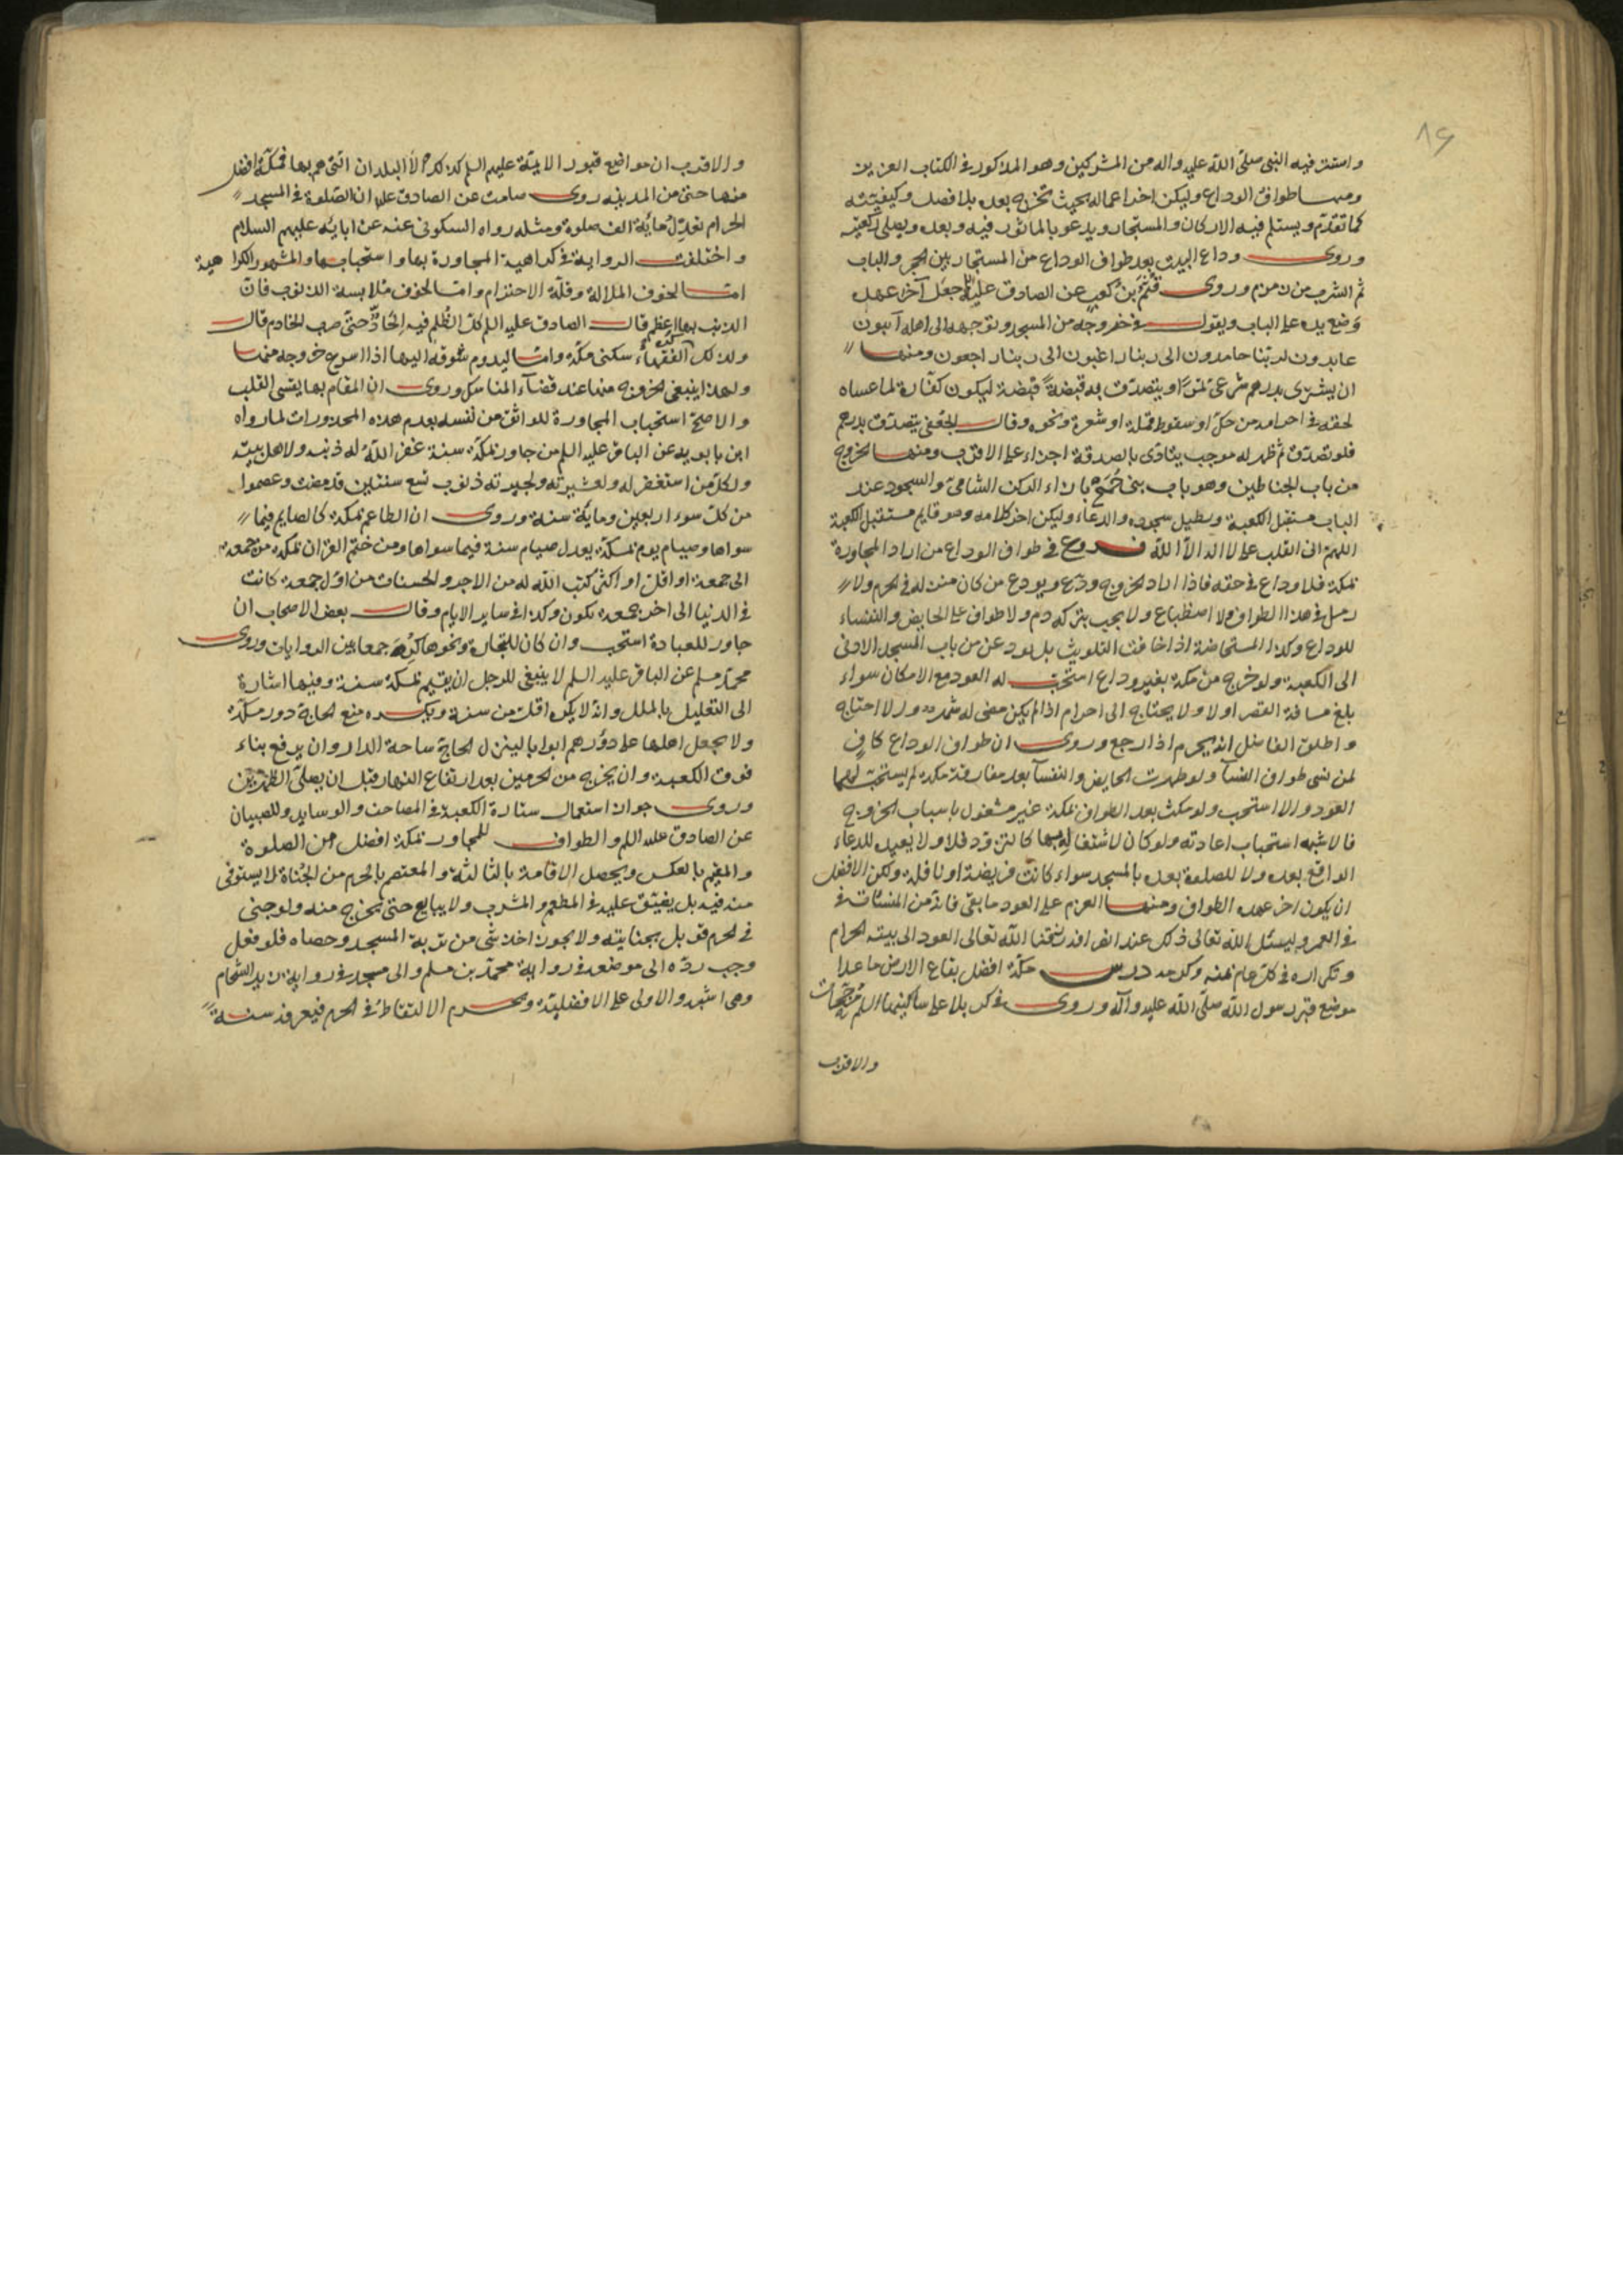 ٨٤
واستتر فيه النبي صلّى اللّه عليه واله من المشركين وهو المذكور في الكتاب العزيز
ومنها طواف الوداع وليكن اخر اعماله بحيث تخرج بعده بلا فصل وكيفيته
كما تقدّم ويستلم فيه الاركان والمستجار ويدعو بالماثور فيه وبعده ويصلى ركعتيه
وروى وداع البيت بعد طواف الوداع من المستجار بين الحجر والباب
ثم الشرب من زمزم وروى قثم بن كعب عن الصادق عليه جعل آخر عهده
وضع يده على الباب ويقول في خروجه من المسجد وتوجهه الى اهله آئبون
عابدون لربنا حامدون الى ربنا راغبون الى ربنا راجعون ومنها
ان يشترى بدرهم شرعى تمرًا ويتصدق به قبضةً قبضة ليكون كفّارة لما عساه
لحقه في احرامه من حكّ او سقوط قملة او شعرة ونحوه وقال الجعفي يتصدّق بدرهم
فلو تصدّق ثم ظهر له موجب يتادّى بالصدقة اجزاء على الاقرب ومنها الخروج
من باب الحناطين وهو باب بنى جُمَح بازاء الركن الشامى والسجود عند
الباب مستقبل الكعبة ويطيل سجوده والدعاء وليكن اخر كلامه وهو قايم مستقبل الكعبة
اللهم انى انقلب على لا اله الّا اللّه فروع في طواف الوداع من اراد المجاورة
بمكة فلا وداع في حقه فاذا اراد الخروج ودّع ويودع من كان منزله في الحرم ولا
رمل في هذا الطواف ولا اضطباع ولا يجب بتركه دم ولا طواف على الحايض والنفساء
للوداع وكذا المستحاضة اذا خافت التلويث بل يودعن من باب المسجد الادنى
الى الكعبة ولو خرج من مكة بغير وداع استحب له العود مع الامكان سواء
بلغ مسافة القصر او لا ولا يحتاج الى احرام اذا لم يكن مضى له شهر والا احتاج
واطلق الفاضل انه يحرم اذا رجع وروى ان طواف الوداع كافٍ
لمن نسى طواف النسآ ولو طهرت الحايض والنفسآ بعد مفارقة مكة لم يستحبّ لهما
العود والا استحب ولو مكث بعد الطواف بمكة غير مشغول باسباب الخروج
فالاشبه استحباب اعادته ولو كان لاشتغاله بها كالتزود فلا ولا يعيد للدعاء
الواقع بعده ولا للصلوة بعده بالمسجد سواء كانت فريضة او نافلة ولكن الافضل
ان يكون اخر عهده الطواف ومنها العزم على العود ما بقى فانّه من المنسئات في
في العمر وليسئل اللّه تعالى ذلك عند انصرافه رزقنا اللّه تعالى العود الى بيته الحرام
وتكراره في كل عام بمنه وكرمه درس مكّة افضل بقاع الارض ما عدا
موضع قبر رسول اللّه صلّى اللّه عليه وآله وروى في كربلا على ساكنيها السلم مرجّحات
والاقرب
والاقرب ان مواضع قبور الائمّة عليهم السلم كذلك الّا البلدان التى هم بها فمكّة افضل
منها حتى من المدينة روى صامت عن الصادق عليه ان الصّلوة في المسجد
الحرام تعدل مائة الف صلوة ومثله رواه السكونى عنه عن ابائه عليهم السلام
واختلفت الرواية في كراهية المجاورة بها واستحبابها والمشهور الكراهية
امّا لخوف الملالة وقلّة الاحترام وامّا لخوف ملابسة الذنوب فانّ
الذنب بها اعظم قال الصادق عليه السلم كلّ الظُلم فيه اِلحادٌ حتّى ضرب الخادم قال
ولذلك كره الفقهاء سكنى مكّة وامّا ليدوم شوقه اليها اذا اسرع خروجه منها
ولهذا ينبغى الخروج منها عند قضآء المناسك وروى ان المقام بها يقسى القلب
والاصحّ استحباب المجاورة للواثق من نفسه بعدم هذه المحذورات لما رواه
ابن بابويه عن الباقر عليه السلم من جاور بمكّة سنة غفر اللّه له ذنبه ولاهل بيته
ولكلّ من استغفر له ولعشيرته ولجيرته ذنوب تسع سنين قد مضت وعصموا
من كلّ سوء اربعين ومائة سنة وروى ان الطاعم بمكة كالصايم فيما
سواها وصيام يوم بمكّة يعدل صيام سنة فيما سواها ومن ختم القرآن بمكة من جمعة
الى جمعة او اقلّ او اكثر كتب اللّه له من الاجر والحسنات من اوّل جمعة كانت
في الدنيا الى اخر جمعة تكون وكذا في ساير الايام وقال بعض الاصحاب ان
جاور للعبادة استحب وان كان للتجارة ونحوها كُرِهَ جمعا بين الروايات وروى
محمّد مسلم عن الباقر عليه السلم لا ينبغى للرجل ان يقيم بمكّة سنة وفيها اشارة
الى التعليل بالملل وانّه لا يكره اقلّ من سنة ويكره منع الحاج دور مكّة
ولا يجعل اهلها على دورهم ابوابا لينزل الحاج ساحة الدار وان يرفع بناء
فوق الكعبة وان يخرج من الحرمين بعد ارتفاع النهار قبل ان يصلّى الظهرين
وروى جواز استعمال ستارة الكعبة في المصاحف والوسايد وللصبيان
عن الصادق عليه السلم والطواف للمجاور بمكّة افضل من الصلوة
والمقيم بالعكس ويحصل الاقامة بالثالثة والمعتصم بالحرم من الجُناة لا يستوفى
منه فيه بل يضيّق عليه في المطعم والمشرب ولا يبايع حتى يخرج منه ولو جنى
في الحرم قوبل بجنايته ولا يجوز اخذ شئ من تربة المسجد وحصاه فلو فعل
وجب ردّه الى موضعه في رواية محمّد بن مسلم والى مسجد في رواية زيد الشحّام
وهى اشبه والاولى على الافضليّة ويحرم الالتقاط في الحرم فيعرفه سنة